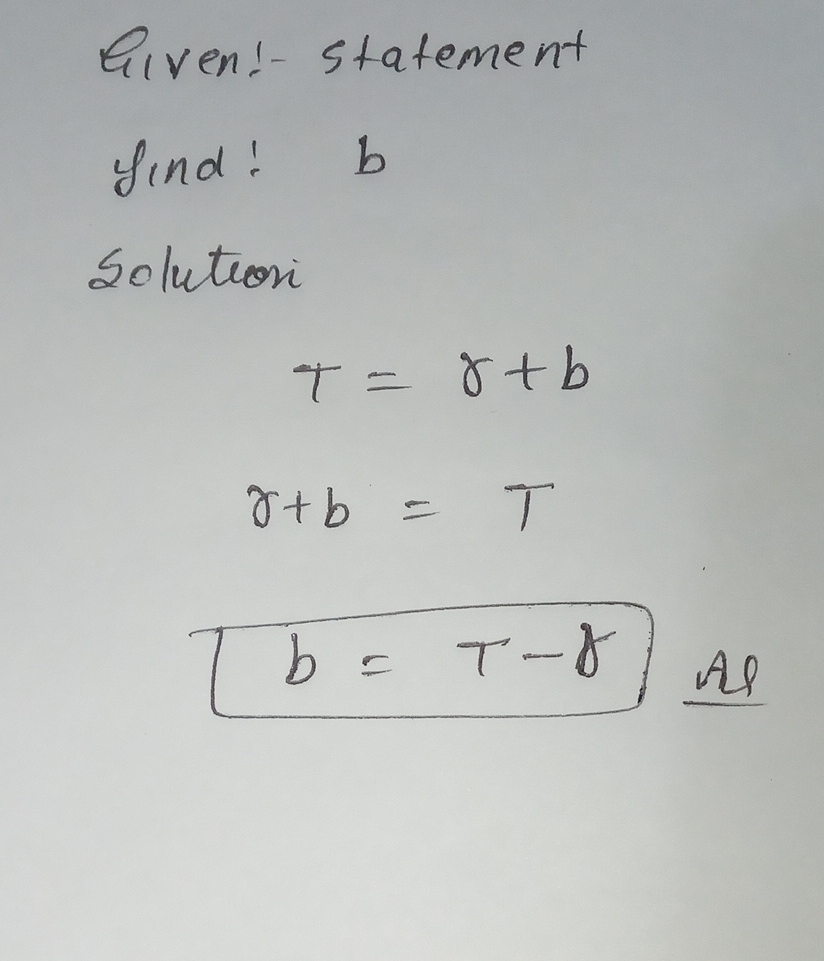 Given:- statement
find: b
Solution
T = r + b
r + b = T
b = T - r